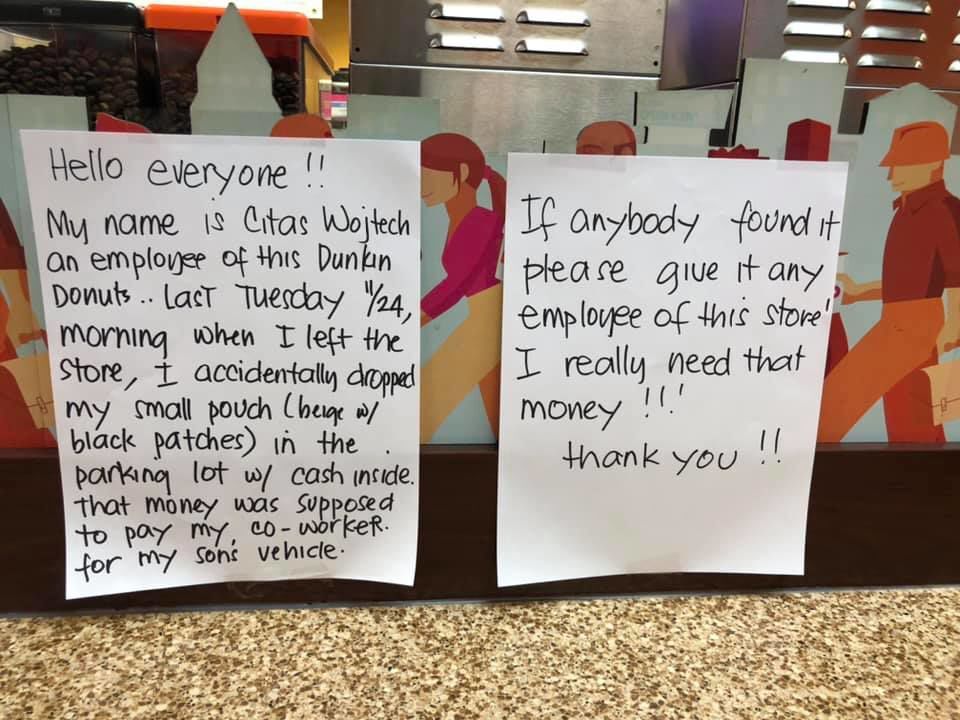 Hello everyone !!
My name is Citas Wojtech
an employee of this Dunkin
Donuts .. Last Tuesday 11/24,
morning when I left the
store, I accidentally dropped
my small pouch (beige w/
black patches) in the
parking lot w/ cash inside.
that money was supposed
to pay my co-worker.
for my son's vehicle.
If anybody found it
please give it any
employee of this store
I really need that
money !!!
thank you !!